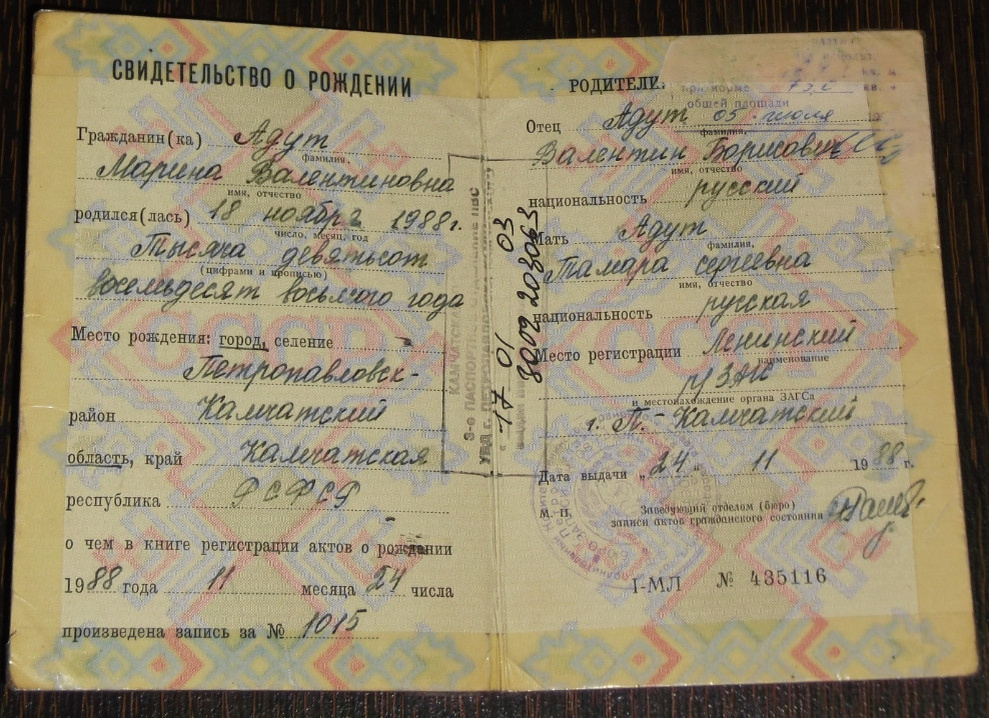 СВИДЕТЕЛЬСТВО О РОЖДЕНИИ
Гражданин(ка) Адут
фамилия,
Марина Валентиновна
имя, отчество
родился(лась) 18 ноября 1988г.
число, месяц, год
Тысяча девятьсот
(цифрами и прописью)
восемьдесят восьмого года
Место рождения: город, селение
Петропавловск-
район Камчатский
область, край Камчатская
республика РСФСР
о чем в книге регистрации актов о рождении
1988 года 11 месяца 24 числа
произведена запись за № 1015
КАМЧАТСКАЯ
3-е ПАСПОРТНОЕ ОТДЕЛЕНИЕ ПВС
17 01 03
3002 203063
РОДИТЕЛИ:
при норме
общей площади
Отец Адут 05 июля
фамилия,
Валентин Борисович
имя, отчество
национальность русский
Мать Адут
фамилия,
Тамара сергеевна
имя, отчество
национальность русская
Место регистрации Ленинский
наименование
ЗАГС
и местонахождение органа ЗАГСа
г. П.-Камчатский
Дата выдачи „24" 11 1988 г.
М. П.
Заведующий отделом (бюро)
записи актов гражданского состояния
I-МЛ № 435116